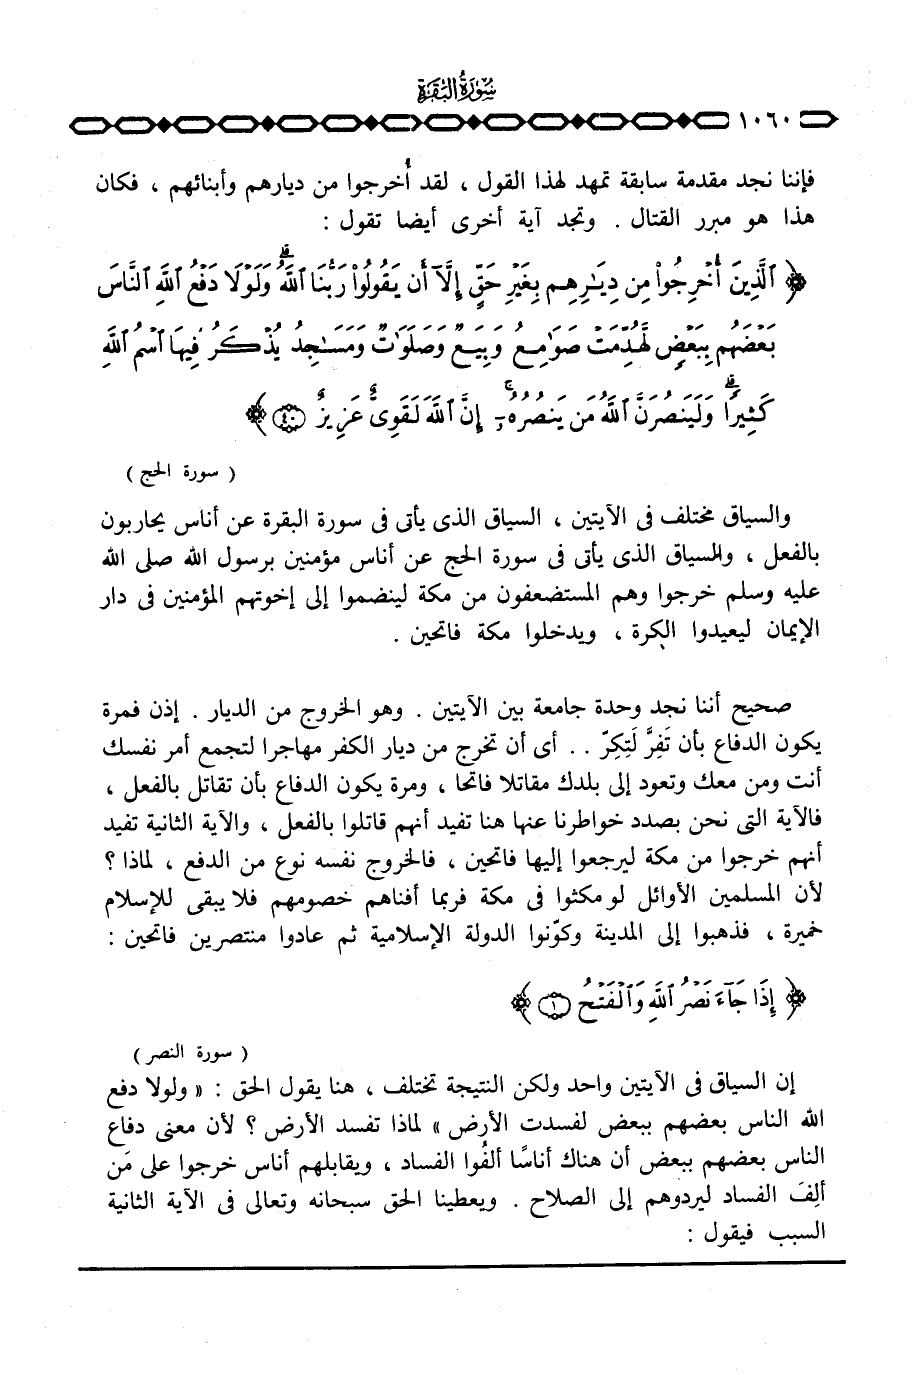 سُورَةُ البَقَرَةِ
١٠٦٠
فإننا نجد مقدمة سابقة تمهد لهذا القول ، لقد أُخرجوا من ديارهم وأبنائهم ، فكان
هذا هو مبرر القتال . وتجد آية أخرى أيضا تقول :
﴿ ٱلَّذِينَ أُخْرِجُوا۟ مِن دِيَـٰرِهِم بِغَيْرِ حَقٍّ إِلَّآ أَن يَقُولُوا۟ رَبُّنَا ٱللَّهُ ۗ وَلَوْلَا دَفْعُ ٱللَّهِ ٱلنَّاسَ
بَعْضَهُم بِبَعْضٍ لَّهُدِّمَتْ صَوَٰمِعُ وَبِيَعٌ وَصَلَوَٰتٌ وَمَسَـٰجِدُ يُذْكَرُ فِيهَا ٱسْمُ ٱللَّهِ
كَثِيرًا ۗ وَلَيَنصُرَنَّ ٱللَّهُ مَن يَنصُرُهُۥٓ ۚ إِنَّ ٱللَّهَ لَقَوِىٌّ عَزِيزٌ ﴿٤٠﴾ ﴾
( سورة الحج )
والسياق مختلف فى الآيتين ، السياق الذى يأتى فى سورة البقرة عن أناس يحاربون
بالفعل ، والسياق الذى يأتى فى سورة الحج عن أناس مؤمنين برسول الله صلى الله
عليه وسلم خرجوا وهم المستضعفون من مكة لينضموا إلى إخوتهم المؤمنين فى دار
الإيمان ليعيدوا الكرة ، ويدخلوا مكة فاتحين .
صحيح أننا نجد وحدة جامعة بين الآيتين . وهو الخروج من الديار . إذن فمرة
يكون الدفاع بأن تَفِرَّ لَتِكِرّ . . أى أن تخرج من ديار الكفر مهاجرا لتجمع أمر نفسك
أنت ومن معك وتعود إلى بلدك مقاتلا فاتحا ، ومرة يكون الدفاع بأن تقاتل بالفعل ،
فالآية التى نحن بصدد خواطرنا عنها هنا تفيد أنهم قاتلوا بالفعل ، والآية الثانية تفيد
أنهم خرجوا من مكة ليرجعوا إليها فاتحين ، فالخروج نفسه نوع من الدفع ، لماذا ؟
لأن المسلمين الأوائل لو مكثوا فى مكة فربما أفناهم خصومهم فلا يبقى للإسلام
خميرة ، فذهبوا إلى المدينة وكوّنوا الدولة الإسلامية ثم عادوا منتصرين فاتحين :
﴿ إِذَا جَآءَ نَصْرُ ٱللَّهِ وَٱلْفَتْحُ ﴿١﴾ ﴾
( سورة النصر )
إن السياق فى الآيتين واحد ولكن النتيجة تختلف ، هنا يقول الحق : « ولولا دفع
الله الناس بعضهم ببعض لفسدت الأرض » لماذا تفسد الأرض ؟ لأن معنى دفاع
الناس بعضهم ببعض أن هناك أناسًا ألفُوا الفساد ، ويقابلهم أناس خرجوا على مَن
ألِفَ الفساد ليردوهم إلى الصلاح . ويعطينا الحق سبحانه وتعالى فى الآية الثانية
السبب فيقول :